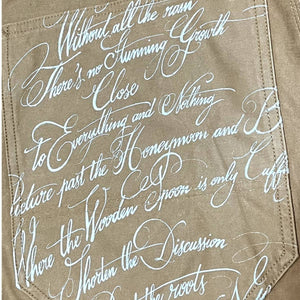 Without all the rain
There's no Stunning Growth
Close
To Everything and Nothing
Picture past the Honeymoon and B
Where the Wooden Spoon is only Cuffi
Shorten the Discussion
the roots